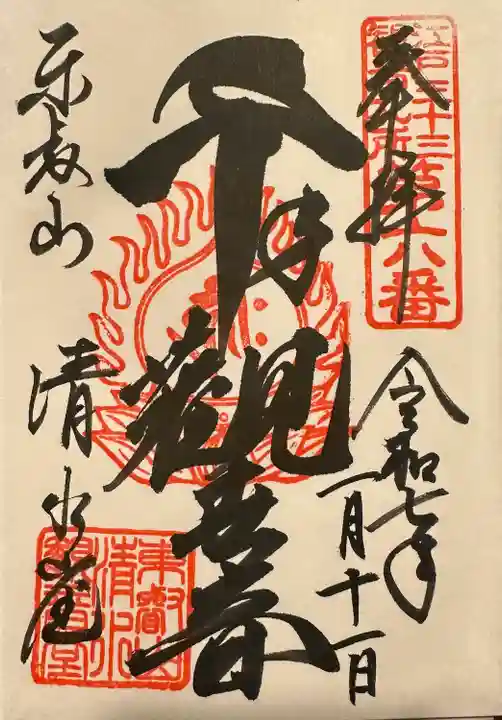 奉拝
三十三
第六番
令和七年
一月十一日
千手
觀世音
東叡山
清水堂
東叡山
清水
觀音堂